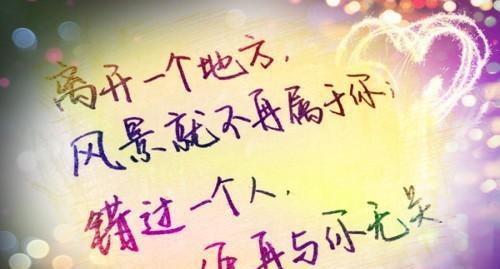 离开一个地方，
风景就不再属于你；
错过一个人，
再与你无关